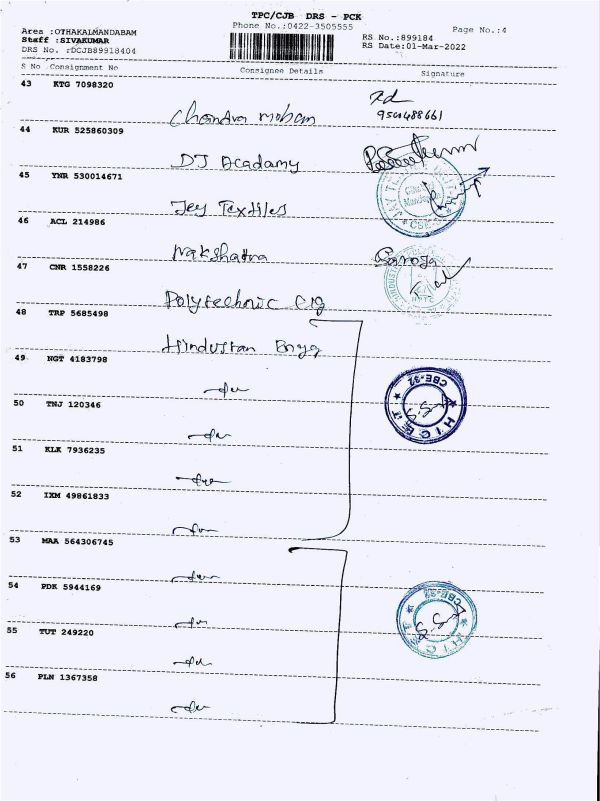 TPC/CJB DRS - PCK
Area :OTHAKALMANDABAM Phone No.:0422-3505555 RS No.:899184 Page No.:4
Staff :SIVAKUMAR RS Date:01-Mar-2022
DRS No. :DCJB89918404
S No Consignment No Consignee Details Signature
43 KTG 7098320
Chandra mohan
9501488661
44 KUR 525860309
DJ Acadamy
45 YNR 530014671
Jey Textiles
46 ACL 214986
Nakshatra Saroja
47 CNR 1558226
Polytechnic Clg
48 TRP 5685498
Hindustan Engg
49 NGT 4183798
CBE-32
HICET
50 TNJ 120346
51 KLK 7936235
52 IXM 49861833
53 MAA 564306745
54 PDK 5944169
CBE-32
55 TUT 249220
56 PLN 1367358